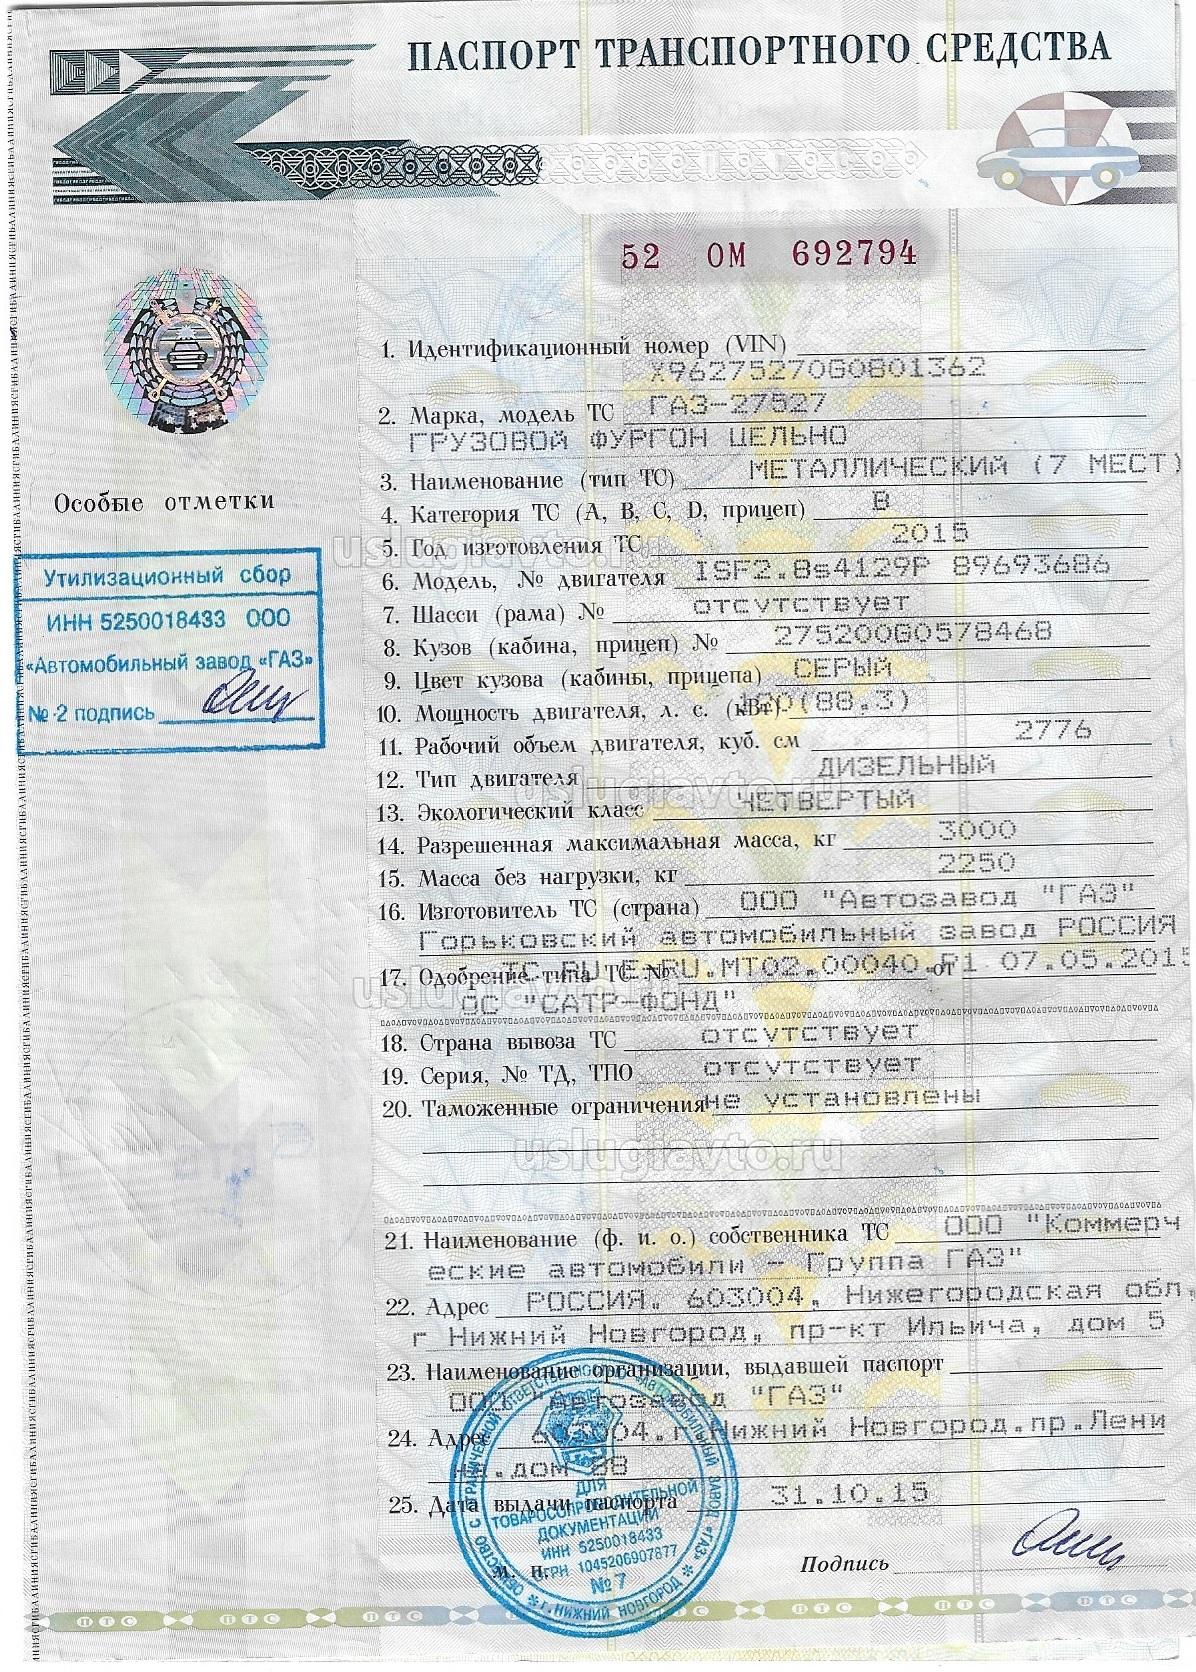 ПАСПОРТ ТРАНСПОРТНОГО СРЕДСТВА
52 ОМ 692794
1. Идентификационный номер (VIN)
X96275270G0801362
2. Марка, модель ТС ГАЗ-27527
ГРУЗОВОЙ ФУРГОН ЦЕЛЬНО
3. Наименование (тип ТС) МЕТАЛЛИЧЕСКИЙ (7 МЕСТ)
4. Категория ТС (A, B, C, D, прицеп) B
5. Год изготовления ТС 2015
6. Модель, № двигателя ISF2.8s4129P 89693686
7. Шасси (рама) № отсутствует
8. Кузов (кабина, прицеп) № 275200G0578468
9. Цвет кузова (кабины, прицепа) СЕРЫЙ
10. Мощность двигателя, л. с. (кВт) (88.3)
11. Рабочий объем двигателя, куб. см 2776
12. Тип двигателя ДИЗЕЛЬНЫЙ
13. Экологический класс ЧЕТВЕРТЫЙ
14. Разрешенная максимальная масса, кг 3000
15. Масса без нагрузки, кг 2250
16. Изготовитель ТС (страна) ООО "Автозавод "ГАЗ"
Горьковский автомобильный завод РОССИЯ
17. Одобрение типа ТС № ТС RU E-RU.МТ02.00040.Р1 от 07.05.2015
ОС "САТР-ФОНД"
18. Страна вывоза ТС отсутствует
19. Серия, № ТД, ТПО отсутствует
20. Таможенные ограничения не установлены
21. Наименование (ф. и. о.) собственника ТС ООО "Коммерч
еские автомобили - Группа ГАЗ"
22. Адрес РОССИЯ, 603004, Нижегородская обл,
г Нижний Новгород, пр-кт Ильича, дом 5
23. Наименование организации, выдавшей паспорт
ООО "Автозавод "ГАЗ"
24. Адрес 603004.г.Нижний Новгород.пр.Лени
на.дом 88
25. Дата выдачи паспорта 31.10.15
Подпись
м. п.
Особые отметки
Утилизационный сбор
ИНН 5250018433 ООО
«Автомобильный завод «ГАЗ»
№ 2 подпись
ОБЩЕСТВО С ОГРАНИЧЕННОЙ ОТВЕТСТВЕННОСТЬЮ «АВТОМОБИЛЬНЫЙ ЗАВОД «ГАЗ»
* Г. НИЖНИЙ НОВГОРОД *
ДЛЯ
ТОВАРОСОПРОВОДИТЕЛЬНОЙ
ДОКУМЕНТАЦИИ
ИНН 5250018433
ОГРН 1045206907877
№ 7
uslugiavto.ru
uslugiavto.ru
uslugiavto.ru
uslugiavto.ru
ПТС ПТС ПТС ПТС ПТС ПТС ПТС ПТС